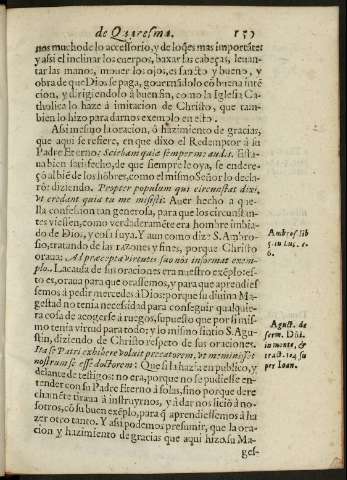 de Quaresma. 157
nos mucho de lo accessorio, y de lo q̃es mas importãte:
y assi el inclinar los cuerpos, baxar las cabeças, leuan-
tar las manos, mouer los ojos, es sancto y bueno, y
obra de que Dios se paga, gouernãdolo cõ buena inté
cion, y dirigiendolo à buen fin, como la Iglesia Ca-
tholica lo haze à imitacion de Christo, que tam-
bien lo hizo para darnos exemplo en esto.
Assi mesmo la oracion, ò hazimiento de gracias,
que aqui se refiere, en que dixo el Redemptor à su
Padre Eterno: Sciebam quia semper me audis. Esta-
ua bien satisfecho, de que siempre le oya, se endere-
çò al biẽ de los hõbres, como el mismo Señor lo decla
rò: diziendo. Propter populum qui circunstat dixi,
vt credant quia tu me misisti: Auer hecho aque-
lla confesion tan generosa, para que los circunstan-
tes viessen, como verdaderamẽte era hombre imbia-
do de Dios, y cosa suya. Y aun como dize S. Ambro-
sio, tratando de las razones y fines, porque Christo
oraua: Ad præcepta virtutis suo nos informat exem-
plo. La causa de sus oraciones era nuestro exẽplo: es-
to es, oraua para que orassemos, y para que aprendies
semos à pedir mercedes à Dios: porque su diuina Ma-
gestad no tenia necessidad para conseguir qualquie-
ra cosa de acogerse à ruegos, supuesto que por si mis-
mo tenia virtud para todo: y lo mismo sintio S. Agu-
stin, diziendo de Christo respeto de sus oraciones.
Ita se Patri exhibere voluit precatorem, vt meminisset
nostrum se esse doctorem: Que si la hazia en publico, y
delante de testigos: no era, porque no se pudiesse en-
tender con su Padre Eterno à solas, sino porque dere
chamẽte tiraua à instruyrnos, y à dar nos liciõ à no-
sotros, cõ su buen exẽplo, para q̃ aprendiessemos à ha
zer otro tanto. Y assi podemos presumir, que la ora-
cion y hazimiento de gracias que aqui hizo su Ma-
ges-
Ambros. lib
5. in Luc. c.
6.
Agust. de
serm. Dñi.
in monte, &
tract. 104 su
per Ioan.